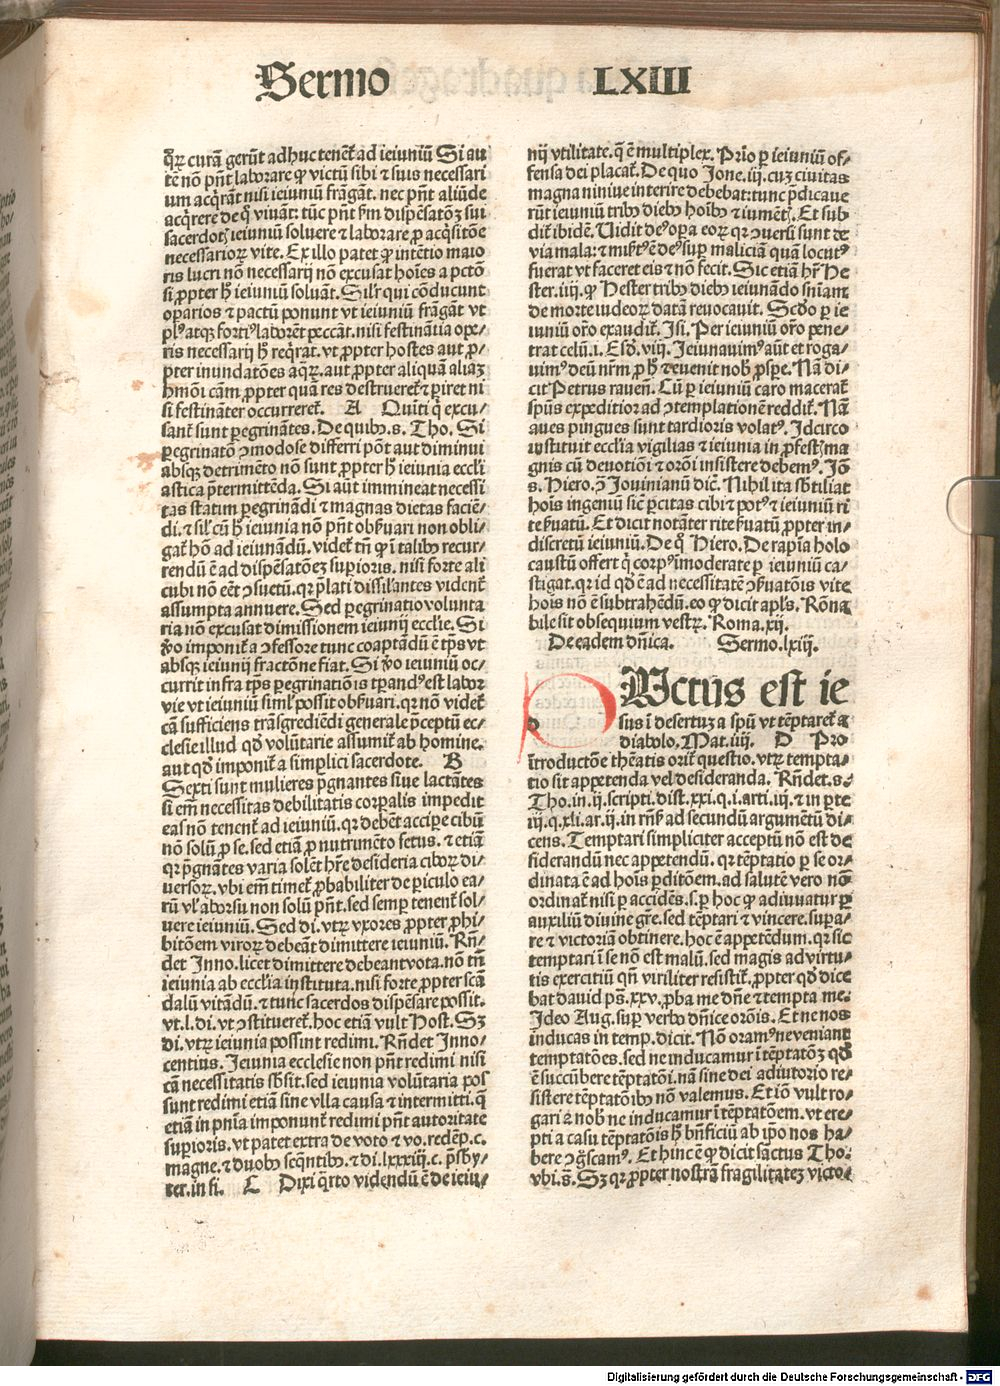 Sermo LXIII
q̄ꝝ curā gerūt adhuc tenēt ad ieiuniū Si au
tē nō pn̄t laborare ꝙ victū sibi ⁊ suis necessari
um acq̄rāt nisi ieiuniū frāgāt. nec pn̄t aliūde
acq̄rere de q̄ viuāt: tūc pn̄t ẜm dispēsatōꝫ sui
sacerdotꝭ ieiuniū soluere ⁊ laborare ꝓ acq̄sitōe
necessarioꝝ vite. Ex illo patet ꝙ intētio maio
ris lucri nō necessarij nō excusat hoīes a pctō
si ꝓpter h̄ ieiuniū soluāt. Silr̄ qui cōducunt
oꝑarios ⁊ pactū ponunt vt ieiuniū frāgāt vt
plꝰ atqꝫ fortiꝰ laborēt peccāt. nisi festinātia oꝑe/
ris necessarij h̄ req̄rat. vt ꝓpter hostes aut ꝓ/
pter inundatōes aqꝝ. aut ꝓpter aliquā aliaꝫ
hmōi cām. ꝓpter quā res destrueret̄ ⁊ ꝑiret ni
si festināter occurreret̄. A Quīti q̄ excu/
sant̄ sunt ꝑegrinātes. De quibꝰ. s. Tho. Si
ꝑegrinatō ꝯmodose differri pōt aut diminui
absqꝫ detrimēto nō sunt ꝓpter h̄ ieiunia eccl̄i
astica p̄termittēda. Si aūt immineat necessi
tas statim ꝑegrinādi ⁊ magnas dietas faciē/
di. ⁊ sil̄ cū h̄ ieiunia nō pn̄t obẜuari non obli/
gat̄ hō ad ieiunādū. videt̄ tn̄ ꝙ ī talibꝰ recur/
rendū ē ad dispēsatōeꝫ suꝑioris. nisi forte ali
cubi nō eēt ꝯsuetū. qꝛ p̄lati dissil̄antes vident̄
assumpta annuere. Sed ꝑegrinatio volunta
ria nō excusat dimissionem ieiunij eccl̄ie. Si
v̄o imponit̄ a ꝯfessore tunc coaptādū ē tp̄s vt
absqꝫ ieiunij fractōne fiat. Si v̄o ieiuniū oc/
currit infra tp̄s ꝑegrinatiōis tꝑandꝰ est labor
vie vt ieiuniū siml̄ possit obẜuari. qꝛ nō videt̄
cā sufficiens trāsgrediēdi generale p̄ceptū ec/
clesie illud qd̄ volūtarie assumit̄ ab homine.
aut qd̄ imponit̄ a simplici sacerdote. B
Sexti sunt mulieres p̄gnantes siue lactātes
si em̄ necessitas debilitatis corꝑalis impedit
eas nō tenent̄ ad ieiuniū. qꝛ debēt accipere cibū
nō solū ꝓ se. sed etiā ꝓ nutrimēto fetus. ⁊ etiā
qꝛ p̄gnātes varia solēt hr̄e desideria ciboꝝ di/
uersoꝝ. vbi em̄ timet̄ ꝓbabiliter de ꝑiculo ea/
rū vl̓ aborsu non solū pn̄t. sed semꝑ tenent̄ sol/
uere ieiuniū. Sed di. vtꝝ vxores ꝓpter ꝓhi/
bitōem viroꝝ debeāt dimittere ieiuniū. Rn̄/
det Inno. licet dimittere debeant vota. nō tn̄
ieiunia ab eccl̄ia instituta. nisi forte ꝓpter scā
dalū vitādū. ⁊ tunc sacerdos dispēsare possit.
vt. l. di. vt ꝯstitueret̄. hoc etiā vult Host. Sꝫ
di. vtꝝ ieiunia possint redimi. Rn̄det Inno/
centius. Ieiunia ecclesie non pn̄t redimi nisi
cā necessitatis sb̄sit. sed ieiunia volūtaria pos
sunt redimi etiā sine vlla causa ⁊ intermitti. q̄
etiā in pn̄ia imponunt̄ redimi pn̄t autoritate
suꝑioris. vt patet extra de voto ⁊ vo. redēp. c.
magne. ⁊ duobꝰ seq̄ntibꝰ. ⁊ di. lxxxiij. c. p̄sby/
ter. in fi. C Dixi q̄rto videndū ē de ieiu/
nij vtilitate. q̄ ē multiplex. Prīo ꝑ ieiuniū of/
fensa dei placat̄. De quo Jone. iij. cuꝫ ciuitas
magna niniue interire debebat: tunc p̄dicaue
rūt ieiuniū tribꝰ diebꝰ hoībꝰ ⁊ iumētꝭ. Et sub
dit̄ ibidē. Uidit deꝰ oꝑa eoꝝ qꝛ ꝯuersi sunt de
via mala: ⁊ mis̄tꝰ ē deꝰ suꝑ maliciā quā locutꝰ
fuerat vt faceret eis ⁊ nō fecit. Sic etiā hr̄ He
ster. iiij. ꝙ Hester tribꝰ diebꝰ ieiunādo sn̄iam
de morte iudeoꝝ datā reuocauit. Scd̄o ꝑ ie
iuniū or̄o exaudit̄. Isi. Per ieiuniū or̄o pene/
trat celū. i. Esd̄. viij. Ieiunauimꝰ aūt et roga/
uimꝰ deū nr̄m ꝓ h̄ ⁊ euenit nob̓ ꝓsꝑe. Nā di/
cit Petrus rauen̄. Cū ꝑ ieiuniū caro macerat̄
spūs expeditior ad ꝯtemplationē reddit̄. Nā
aues pingues sunt tardioris volatꝰ. Idcirco
instituit eccl̄ia vigilias ⁊ ieiunia in ꝓfestꝭ ma
gnis cū deuotiōi ⁊ orōi insistere debemꝰ. Iō
s. Hiero. ꝯ̄ Jouinianū dic̄. Nihil ita sb̄tiliat
hoīs ingeniū sic̄ ꝑcitas cibi ⁊ potꝰ ⁊ ieiuniū ri
te ẜuatū. Et dicit notāter rite ẜuatū ꝓpter in/
discretū ieiuniū. De q̄ Hiero. De rapīa holo
caustū offert q̄ corpꝰ īmoderate ꝑ ieiuniū ca/
stigat. qꝛ id qd̄ ē ad necessitatē ꝯẜuatōis vite
hoīs nō ē subtrahēdū. eo ꝙ dicit apl̄s. Rōna
bile sit obsequium vestꝝ. Roma. xij.
De eadem dn̄ica. Sermo. lxiij.
DUctus est ie
sus ī desertuꝫ a spū vt tēptaret̄ a
diabolo. Mat. iiij. D Pro
ītroductōe thēatis orit̄ questio. vtꝝ tempta/
tio sit appetenda vel desideranda. Rn̄det. s.
Tho. in. ij. scripti. dist. xxi. q. i. arti. iij. ⁊ in ꝑte
iij. q. xli. ar. ij. in rn̄s̄ ad secundū argumētū di/
cens. Temptari simpliciter acceptū nō est de
siderandū nec appetendū. qꝛ tēptatio ꝑ se or/
dinata ē ad hoīs ꝑditōem. ad salutē vero nō
ordinat̄ nisi ꝑ accidēs. s. ꝑ hoc ꝙ adiuuatur ꝑ
auxiliū diuine gr̄e. sed tēptari ⁊ vincere. suꝑa/
re ⁊ victoriā obtinere. hoc ē appetēdum. qꝛ sic
temptari ī se nō est malū. sed magis ad virtu/
tis exercitiū qn̄ viriliter resistit̄. ꝓpter qd̄ dice
bat dauid ps̄. xxv. ꝓba me dn̄e ⁊ tempta me.
Ideo Aug. suꝑ verbo dn̄ice orōis. Et ne nos
inducas in temp. dicit. Nō oramꝰ ne veniant
temptatōes. sed ne inducamur ī tēptatōꝫ qd̄
ē succūbere tēptatōi. nā sine dei adiutorio re/
sistere tēptatōibꝰ nō valemus. Et iō vult ro/
gari a nob̓ ne inducamur ī tēptatōem. vt ere/
pti a casu tēptatōis h̄ bn̄ficiū ab ip̄o nos ha/
bere ꝯgscamꝰ. Et hinc ē ꝙ dicit sāctus Tho.
vbi. s̄. Sꝫ qꝛ ꝓpter nostrā fragilitateꝫ victo/
Digitalisierung gefördert durch die Deutsche Forschungsgemeinschaft - DFG